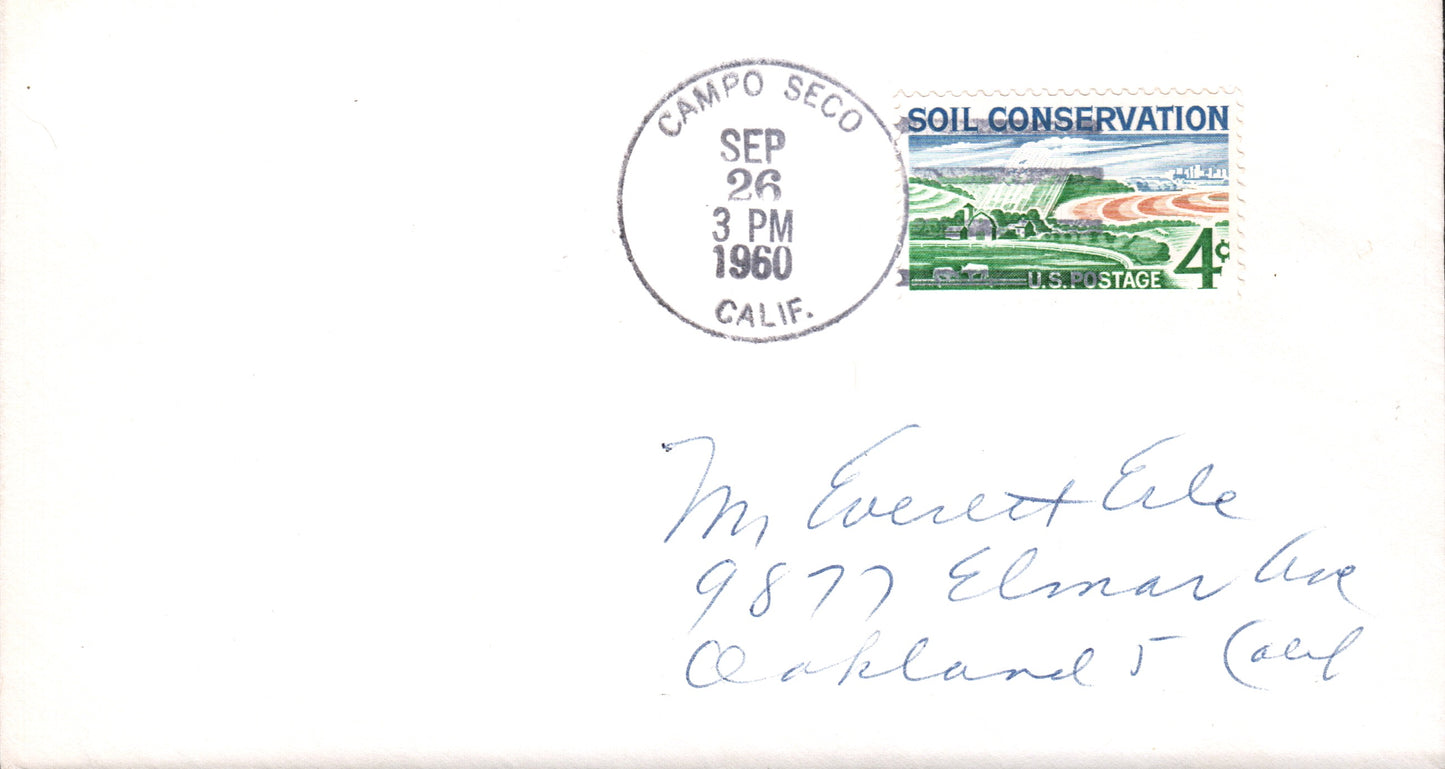 CAMPO SECO
SEP
26
3 PM
1960
CALIF.
SOIL CONSERVATION
4¢
U.S. POSTAGE
Mr Everett Erle
9877 Elmar Ave
Oakland 5 Calif